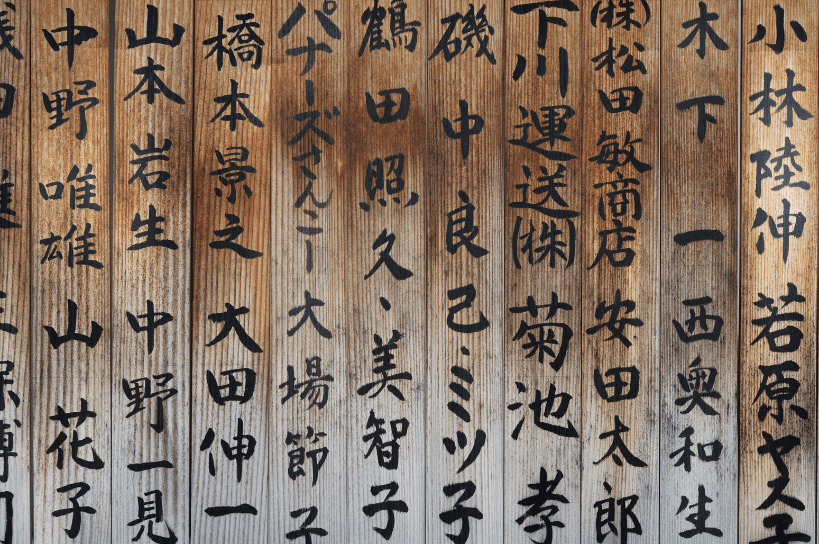 小林陸伸 若原ヤス子
木下 一 西奥和生
(株)松田敏商店 安田太郎
下川運送(株) 菊池 孝
磯中 良己・ミツ子
鶴田照久・美智子
パナーズさんこー 大場節子
橋本景之 大田伸一
山本岩生 中野一見
中野唯雄 山 花子